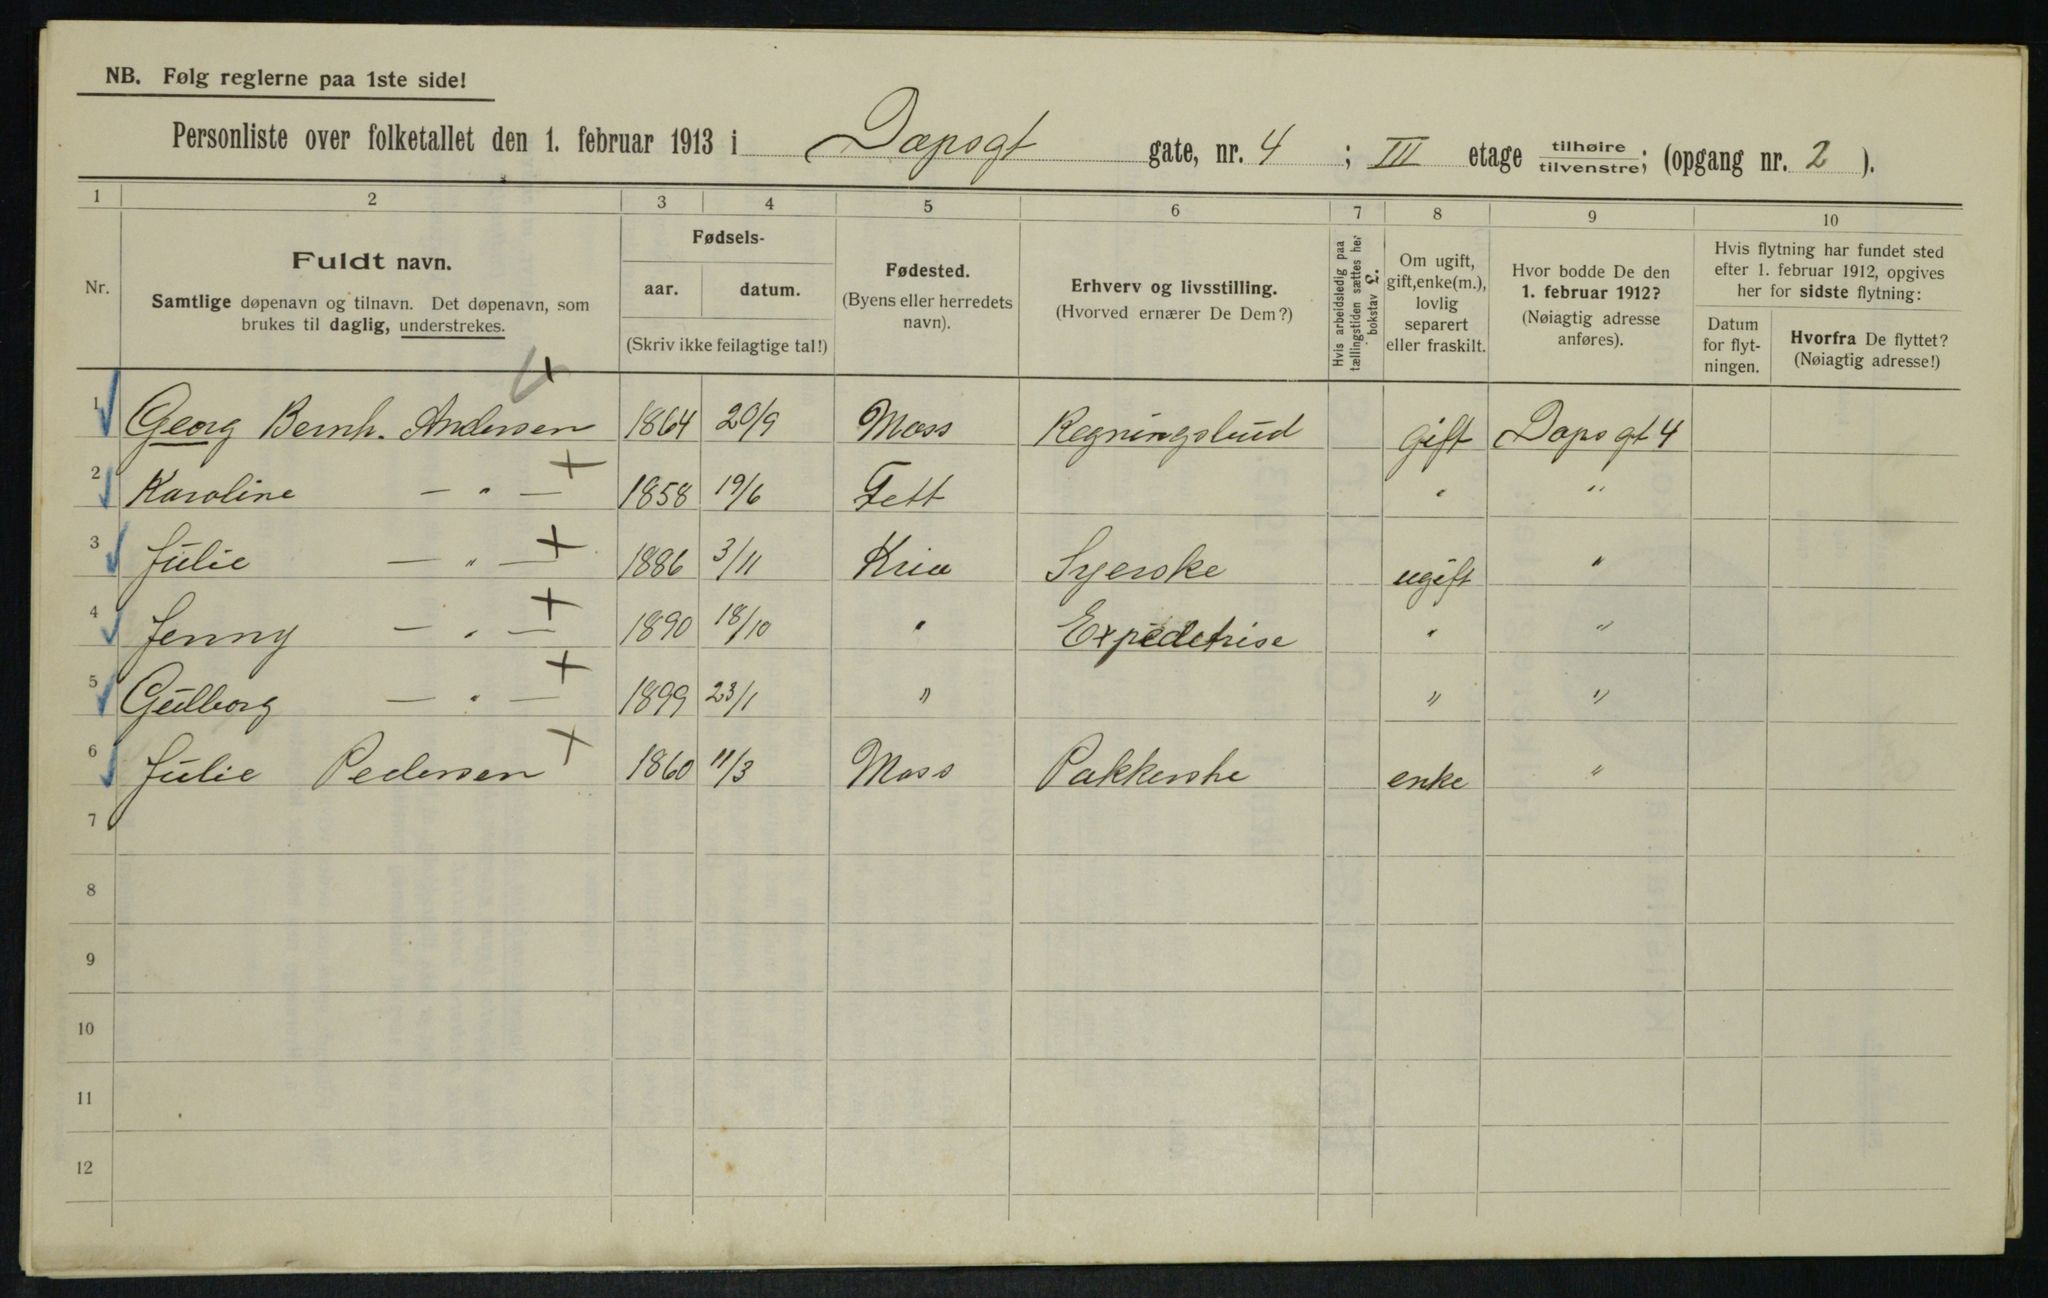 NB. Følg reglerne paa 1ste side!
Personliste over folketallet den 1. februar 1913 i Dapsgt gate, nr. 4 ; III etage tilhøire/tilvenstre; (opgang nr. 2 ).
1 2 3 4 5 6 7 8 9 10
Nr.
Fuldt navn.
Samtlige døpenavn og tilnavn. Det døpenavn, som
brukes til daglig, understrekes.
Fødsels-
aar. datum.
(Skriv ikke feilagtige tal!)
Fødested.
(Byens eller herredets
navn).
Erhverv og livsstilling.
(Hvorved ernærer De Dem?)
Hvis arbeidsledig paa
tællingstiden sættes her
bokstav L.
Om ugift,
gift, enke(m.),
lovlig
separert
eller fraskilt.
Hvor bodde De den
1. februar 1912?
(Nøiagtig adresse
anføres).
Hvis flytning har fundet sted
efter 1. februar 1912, opgives
her for sidste flytning:
Datum
for flyt-
ningen.
Hvorfra De flyttet?
(Nøiagtig adresse!)
1 Georg Bernh. Andersen 1864 20/9 Moss Regningsbud gift Daps gt 4
2 Karoline — " — 1858 19/6 Tett " "
3 Julie — " — 1886 3/11 Kria Syerske ugift "
4 Jenny — " — 1890 18/10 " Expedetrise " "
5 Gulborg — " — 1899 23/1 " " "
6 Julie Pedersen 1860 11/3 Moss Pakkerske enke "
7
8
9
10
11
12